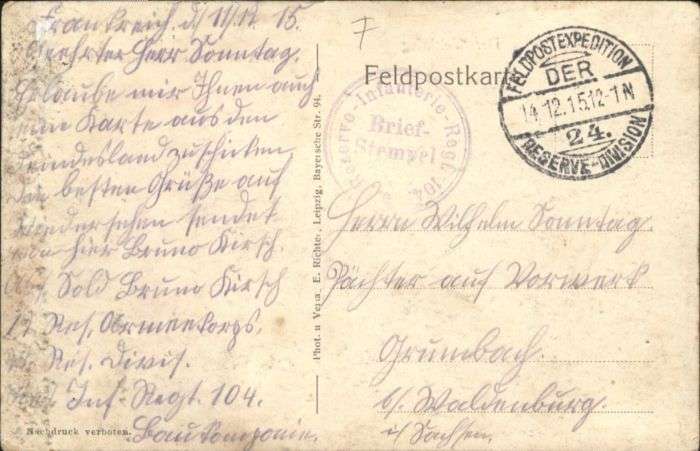 Frankreich d/ 11/12. 15.
Geehrter Herr Sonntag.
Erlaube mir Ihnen auch
eine Karte aus den
Feindesland zu schicken
den besten Grüße auf
wiedersehen sendet
von hier Bruno Kirsch.
Sold Bruno Kirsch
Res. Armeekorps.
Res. Divis.
Inf-Regt. 104.
Baukompanie.
Nachdruck verboten.
Phot. u. Verla. E. Richter, Leipzig, Bayersche Str. 94.
7
Feldpostkarte
Reserve-Infanterie-Regt.
Brief-
Stempel
FELDPOSTEXPEDITION
DER
14.12.15.12-1N
24.
RESERVE-DIVISION
Herrn Wilhelm Sonntag.
Pächter auf Vorwerk
Grumbach.
b/ Waldenburg.
i/ Sachsen.